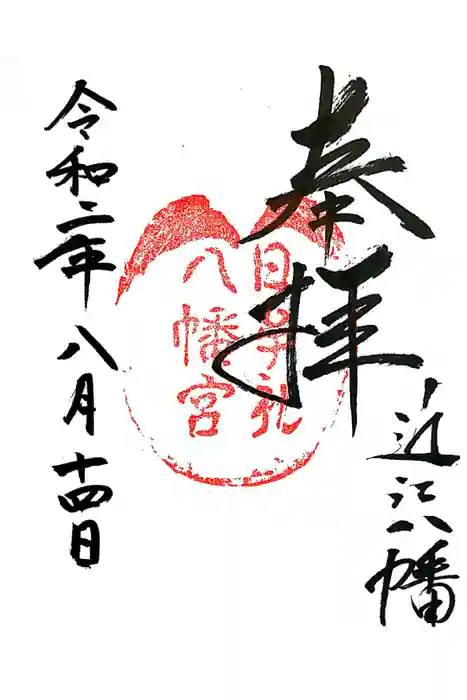 奉拝
近江八幡
日牟礼
八幡宮
令和二年八月十四日